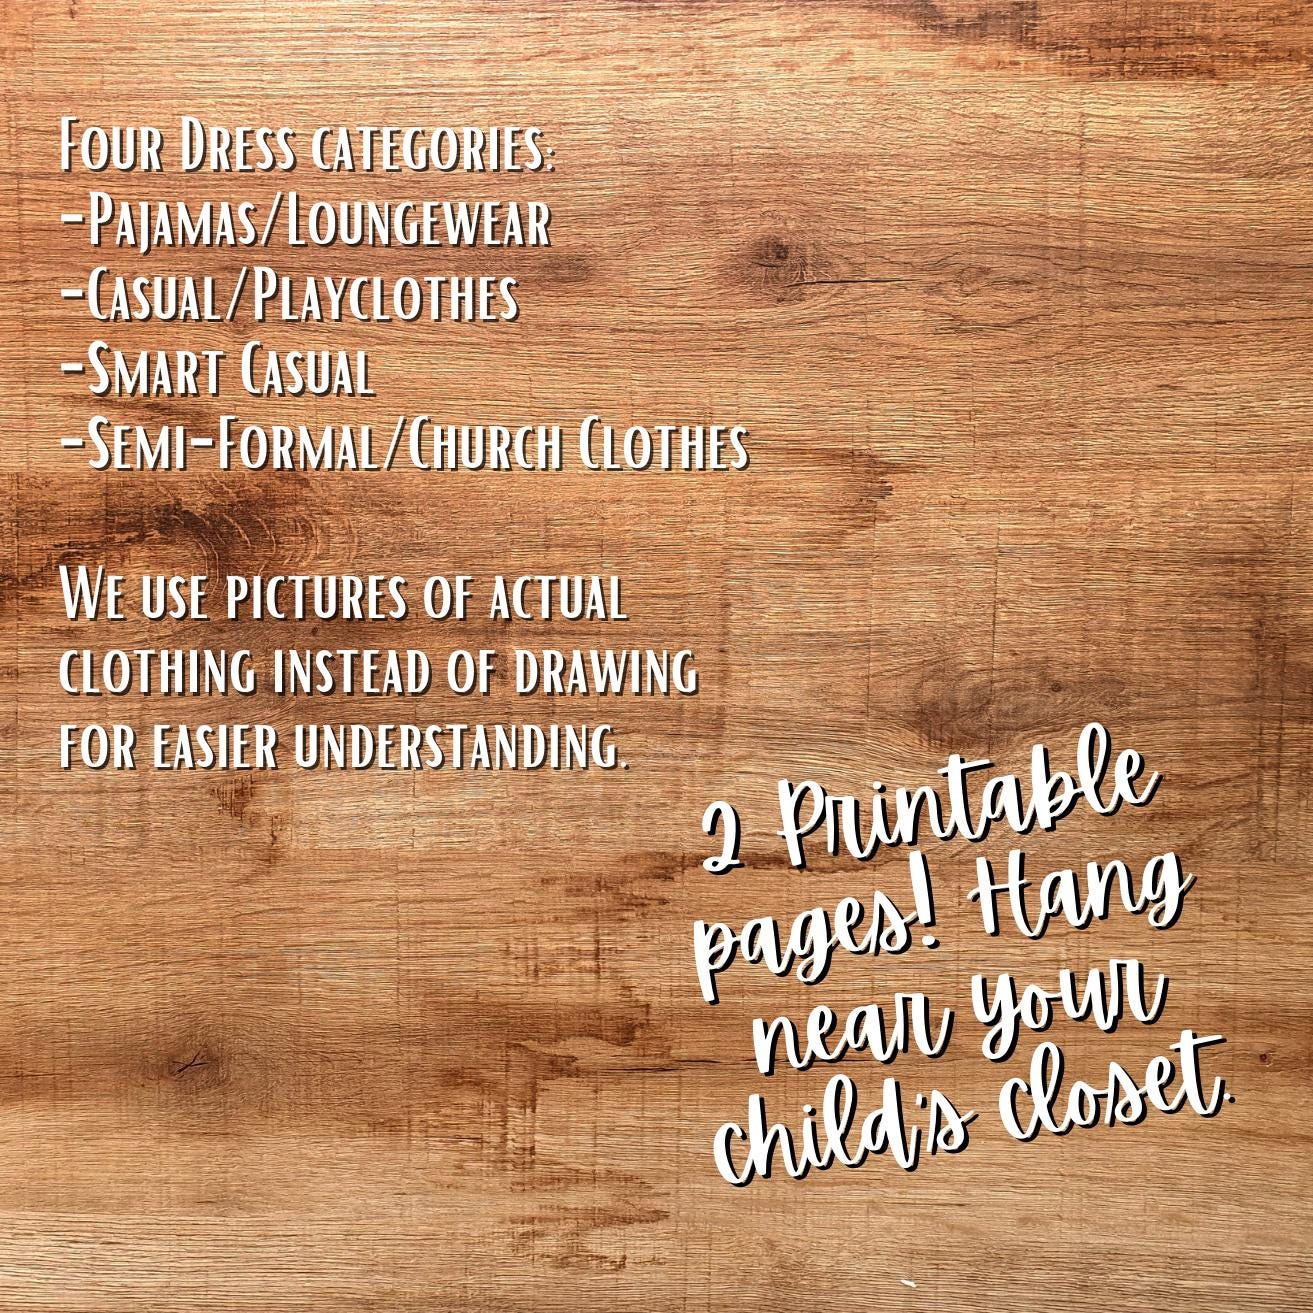 Four Dress categories:
-Pajamas/Loungewear
-Casual/Playclothes
-Smart Casual
-Semi-Formal/Church Clothes
We use pictures of actual
clothing instead of drawing
for easier understanding.
2 Printable
pages! Hang
near your
child's closet.